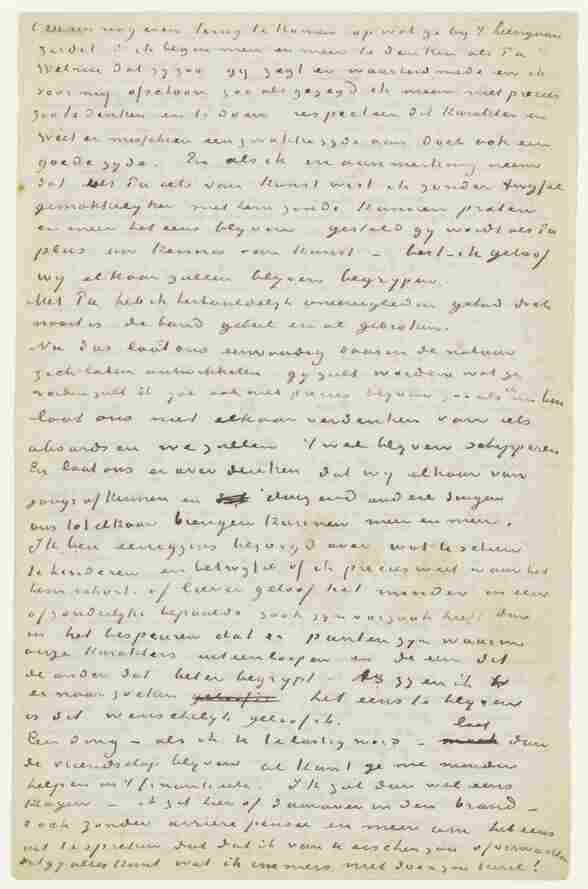 Om even nog even terug te komen op wat ge bij 't heengaan
zeidet ik begin meer en meer te denken als Pa
Welnu dat zij zoo gij zegt er waarheid mede en ik
voor mij ofschoon zoo als gezegd ik meen niet precies
zoo te denken en te doen respecteer dit karakter en
weet er misschien een zwakke zijde aan doch ook een
goede zijde. En als ik in aanmerking neem
dat als Pa iets van kunst wist ik zonder twijfel
gemakkelijker met hem zoude kunnen praten
en meer het eens blijven gesteld gij wordt als Pa
plus uw kennis van kunst – best – ik geloof
wij elkaar zullen blijven begrijpen.
Met Pa heb ik herhaaldelijk oneenigheden gehad doch
nooit is de band geheel en al gebroken.
Nu dus laat ons eenvoudig daarin de natuur
zich laten ontwikkelen gij zult worden wat ge
worden zult ik zal ook niet precies blijven zoo als ik nu ben
laat ons niet elkaar verdenken van iets
absurds en we zullen 't wel blijven schipperen
En laat ons er over denken dat wij elkaar van
jongs af kennen en duizend andere dingen
ons tot elkaar brengen kunnen meer en meer.
Ik ben eenigzins bezorgd over wat te scheen
te hinderen en betwijfel of ik precies weet waar het
hem schort. of liever geloof het minder in een
afzonderlijke bepaalde zaak zijn oorzaak heeft dan
in het bespeuren dat er punten zijn waarin
onze karakters uiteenloopen en de een dit
de ander dat beter begrijpt. – Als gij en ik
er naar zoeken het eens te blijven
is dit wenschelijk geloof ik.
Een ding – als ik te lastig word – laat dan
de vriendschap blijven al kunt ge me minder
helpen in 't financieele. Ik zal dan wel eens
klagen – ik zit hier of daarover in den brand –
doch zonder arrière pensée en meer om het eens
uit te spreken dan dat ik van U eischen zou of verwachten
dat gij alles kunt wat ik immers niet doe ouwe kerel!